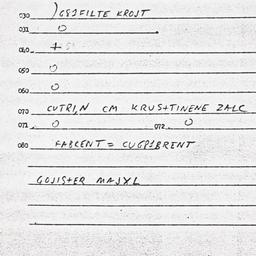 030 ) GSJFILTE KROJT
031 O
040 +
050 O
060 O
070 CUTRI,N CM KRUS+TINENE ZALC
071 O 072 O
080 FABCENT = CUGPIBRENT
GOJIS+ER MAJXL